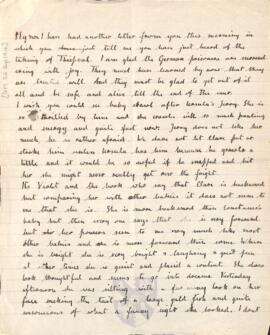 My own I have had another letter from you this morning in
which you just tell me you have just heard of the
taking of Thiepval. I am glad the German prisoners are
with joy. They must have learned by now that they
are treated well. And they must be glad to get out of it
all and be safe and alive till the end of the war.
I wish you could see baby about after Ursula's Jenny. She is
so thrilled by him and she crawls with so much panting
and energy and quite fast now. Jenny does not take her
much he is rather afraid. he does not let Clare pat or
stroke him unless Ursula has him because he growls a
little and it would be so awful if he snapped and bit
her she might never really get over the fright.
Vi Violet and the book who say that Clare is backward
but comparing her with other babies it does not seem to
me that she is. She is more backward than Constance's
baby but then every one says that she is very forward.
but else her powers seem to me very much like most
other babies and she is more forward than some. When
she is bright she is very bright & laughing & quite fun
at other times she is quiet and placid & content. She does
look thoughtful and seems to go into dreams. Yesterday
afternoon she was sitting with a far away look on her
face sucking the tail of a large gold fish and quite
unconscious of what a funny sight she looked. I don't